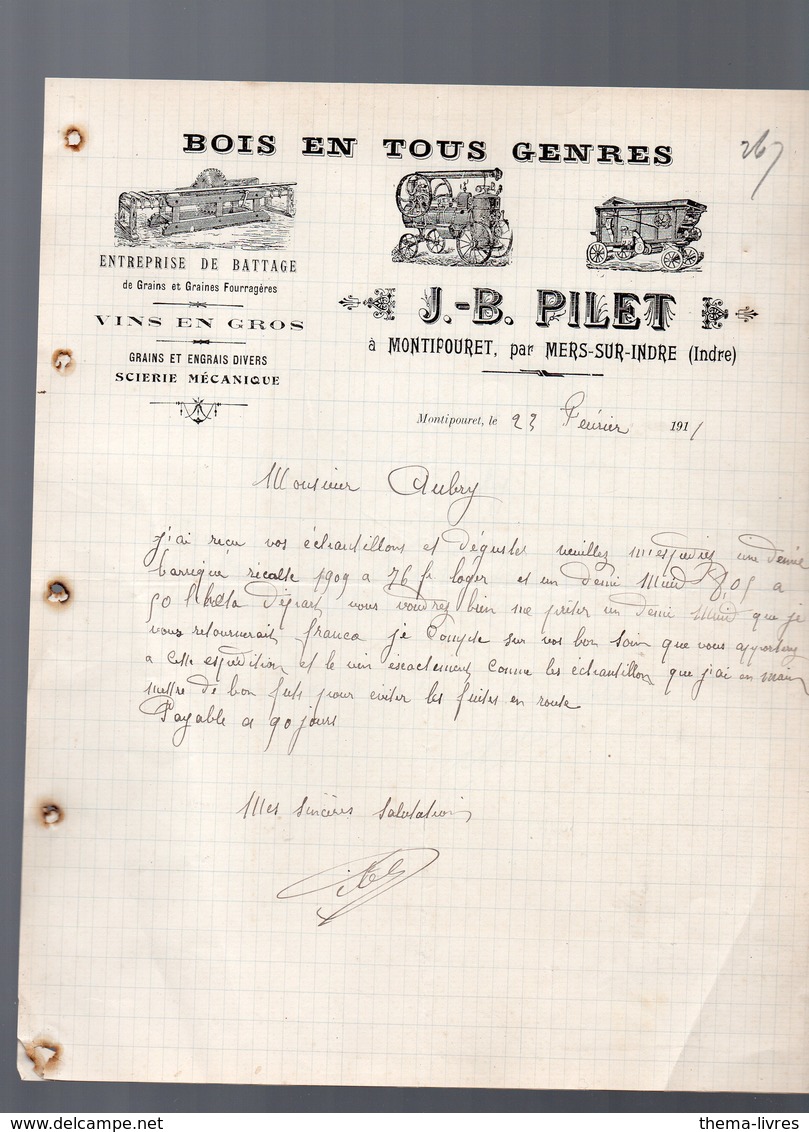 BOIS EN TOUS GENRES
267
ENTREPRISE DE BATTAGE
de Grains et Graines Fourragères
VINS EN GROS
GRAINS ET ENGRAIS DIVERS
SCIERIE MÉCANIQUE
J.-B. PILET
à MONTIPOURET, par MERS-SUR-INDRE (Indre)
Montipouret, le 23 Février 1911
Monsieur Aubry
j'ai recu vos échantillons et déguster veuillez m'expedier une demie
barrique récolte 1909 a 76 f loger et un demi Muid 8,05 a
50 l'hecto départ vous voudrez bien me prêter un demi Muid que je
vous retournerait franco je compte sur vos bon soin que vous apporterez
a cette expedition et le vin exactement comme les échantillon que j'ai en main
mettre de bon futs pour eviter les fuites en route
Payable a 90 jours
Mes sincères salutations
thema-livres